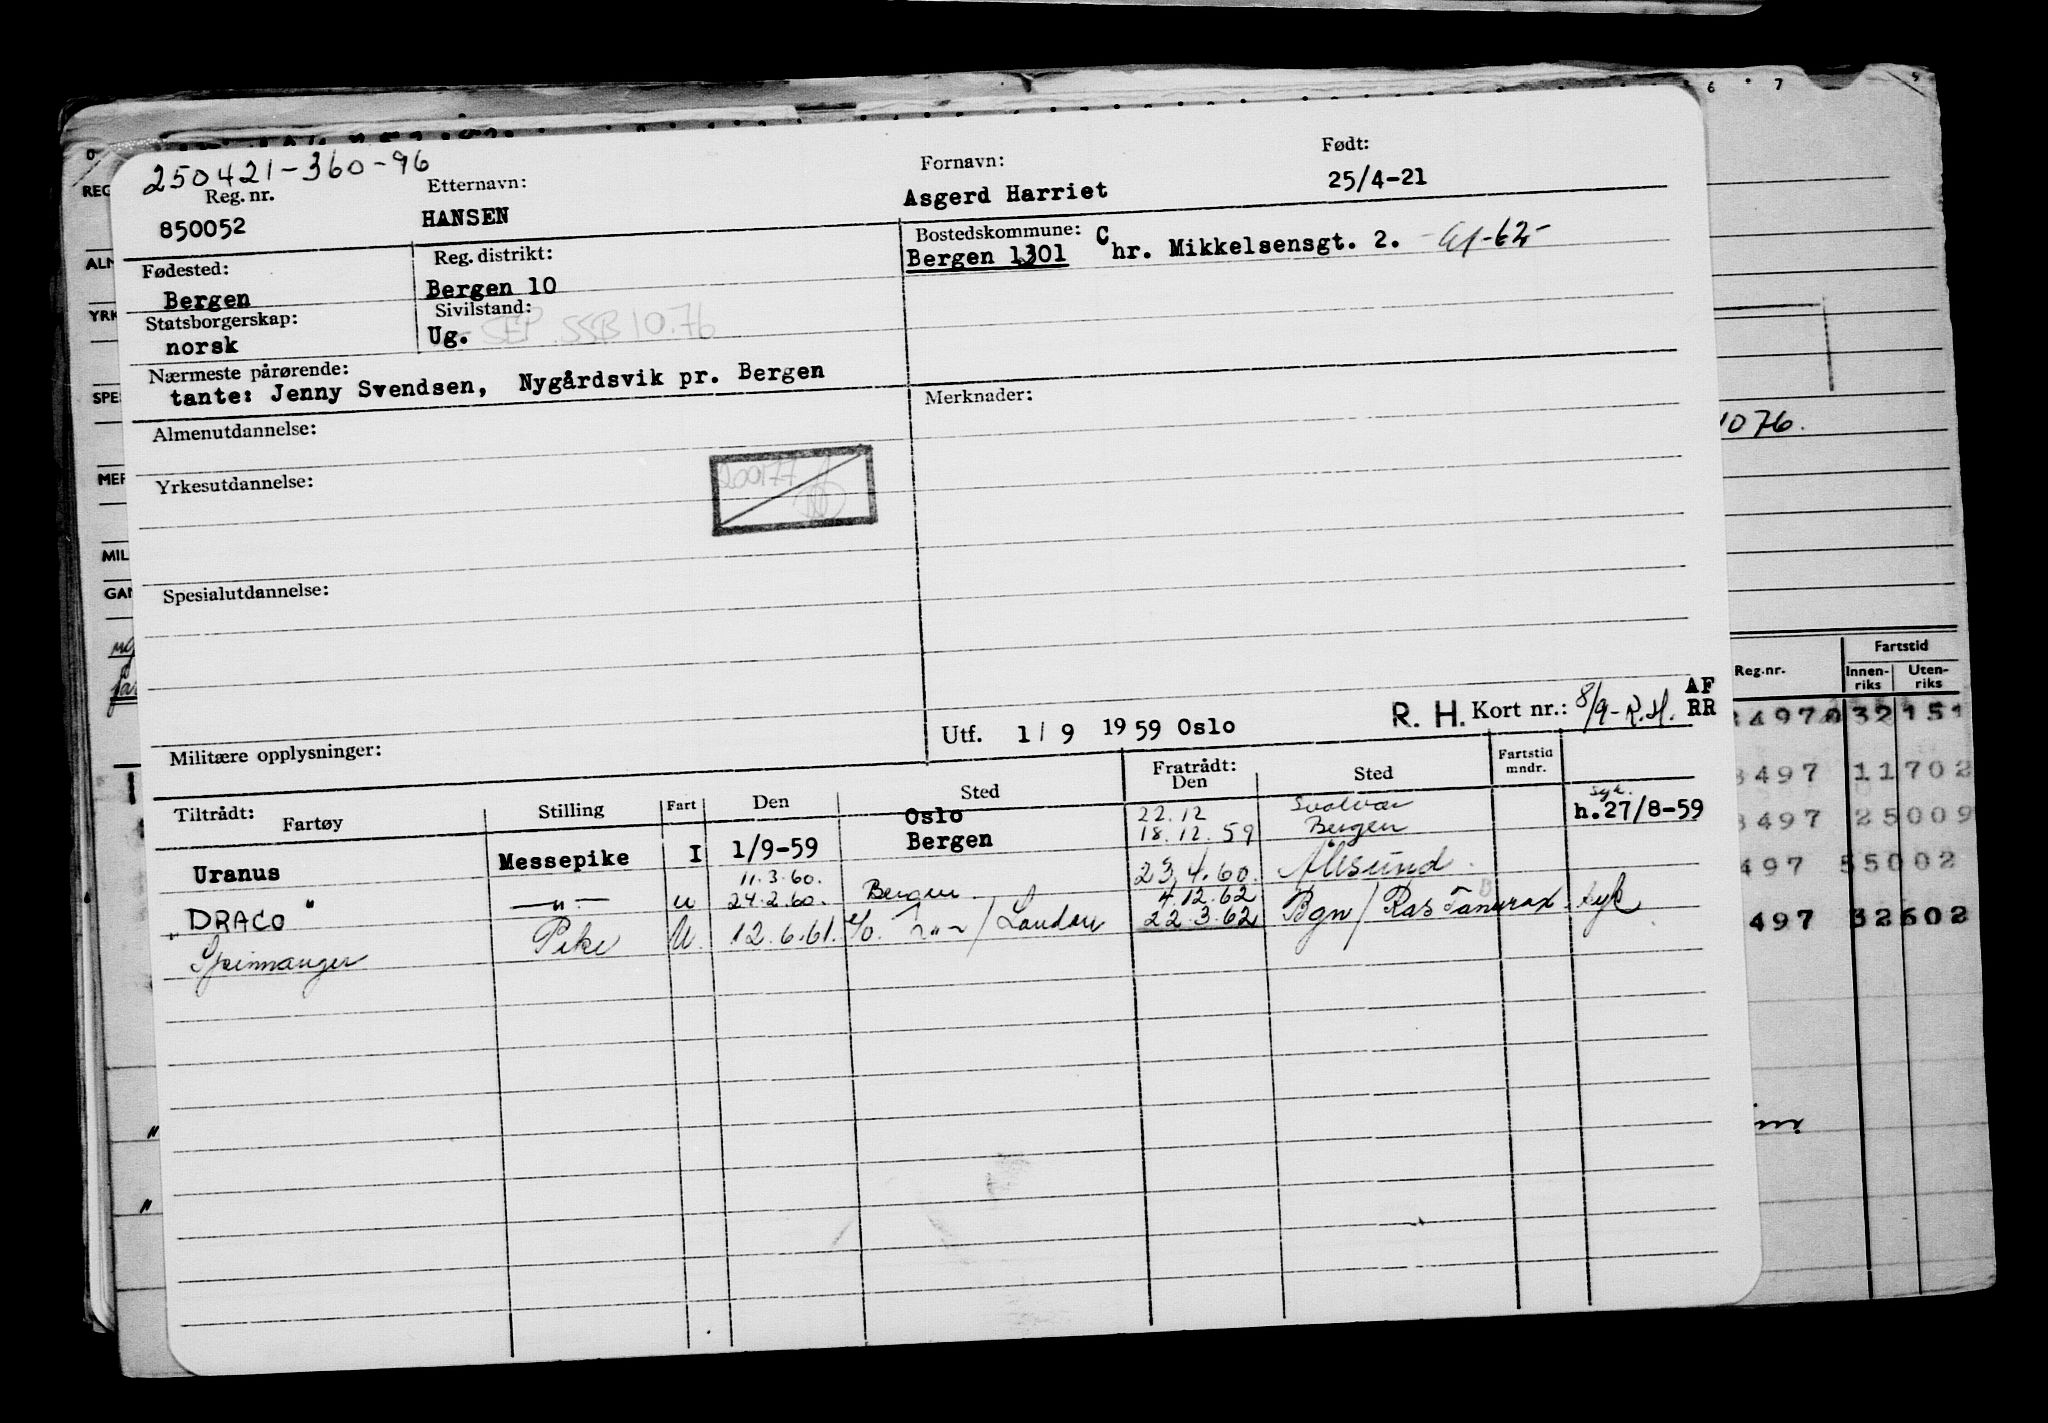 250421-360-96
Reg. nr. Etternavn: Fornavn: Født:
850052 HANSEN Asgerd Harriet 25/4-21
Fødested: Reg. distrikt: Bostedskommune:
Bergen Bergen 10 Bergen 1301 Chr. Mikkelsensgt. 2.
Statsborgerskap: Sivilstand:
norsk Ug. SEP. SSB 10.76
Nærmeste pårørende:
tante: Jenny Svendsen, Nygårdsvik pr. Bergen
Merknader:
Almenutdannelse:
Yrkesutdannelse:
200177
Spesialutdannelse:
Militære opplysninger:
Utf. 1/9 1959 Oslo R. H. Kort nr.: 8/9-R.H. AF RR
Tiltrådt: Fratrådt:
Fartøy Stilling Fart Den Sted Den Sted Fartstid mndr.
Oslo 22.12 Svolvær syk.
Uranus Messepike I 1/9-59 Bergen 18.12.59 Bergen h.27/8-59
11.3.60.
" DRACO " — " — u 24.2.60. Bergen 23.4.60. Ålesund
4.12.62
Spinanger Pike U. 12.6.61. / London 22.3.62 Bgn/Ras Tanura syk
0 6 7
REG
ALM
YRK
SPES
MER
MIL
GAN
1076.
Reg.nr. Fartstid
Innen-riks Uten-riks
497 11702
497 25009
497 55002
497 32502